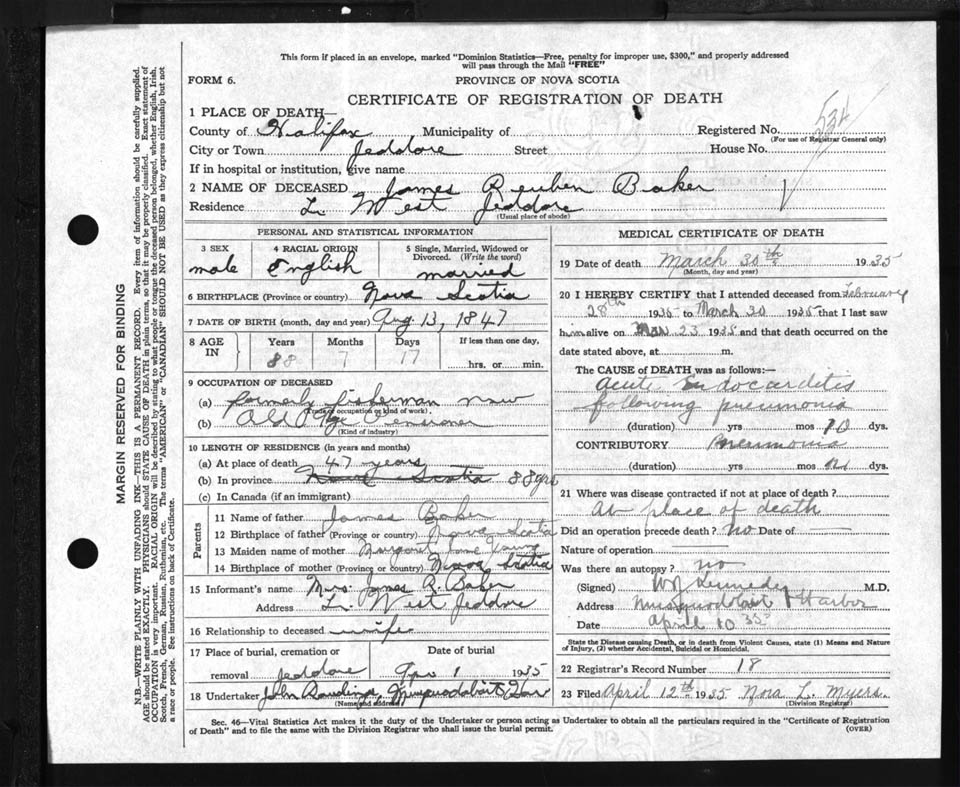 This form if placed in an envelope, marked "Dominion Statistics—Free, penalty for improper use, $300," and properly addressed
will pass through the Mail "FREE"
FORM 6. PROVINCE OF NOVA SCOTIA
CERTIFICATE OF REGISTRATION OF DEATH
1 PLACE OF DEATH—
County of Halifax Municipality of Registered No. 534
(For use of Registrar General only)
City or Town Jeddore Street House No.
If in hospital or institution, give name
2 NAME OF DECEASED James Reuben Baker
Residence L. West Jeddore
(Usual place of abode)
PERSONAL AND STATISTICAL INFORMATION
3 SEX 4 RACIAL ORIGIN 5 Single, Married, Widowed or
Divorced. (Write the word)
male English married
6 BIRTHPLACE (Province or country) Nova Scotia
7 DATE OF BIRTH (month, day and year) Aug 13, 1847
8 AGE IN Years Months Days If less than one day,
88 7 17 hrs. or min.
9 OCCUPATION OF DECEASED
(a) formerly fisherman now
(Trade of occupation or kind of work)
(b) Old Age Pensioner
(Kind of industry)
10 LENGTH OF RESIDENCE (in years and months)
(a) At place of death 47 years
(b) In province Nova Scotia 88 yrs
(c) In Canada (if an immigrant)
Parents
11 Name of father James Baker
12 Birthplace of father (Province or country) Nova Scotia
13 Maiden name of mother Jane
14 Birthplace of mother (Province or country) Nova Scotia
15 Informant's name Mrs. James R. Baker
Address L. West Jeddore
16 Relationship to deceased wife
17 Place of burial, cremation or Date of burial
removal Jeddore Apr 1 1935
18 Undertaker John
(Name and address)
MEDICAL CERTIFICATE OF DEATH
19 Date of death March 30th 1935
(Month, day and year)
20 I HEREBY CERTIFY that I attended deceased from February
28th 1935 to March 30 1935 that I last saw
him alive on Mar 23 1935 and that death occurred on the
date stated above, at m.
The CAUSE OF DEATH was as follows:—
Acute Endocarditis
following pneumonia
(duration) yrs mos 10 dys.
CONTRIBUTORY Pneumonia
(duration) yrs mos dys.
21 Where was disease contracted if not at place of death?
At place of death
Did an operation precede death? no Date of
Nature of operation
Was there an autopsy? no
(Signed) W Kennedy M.D.
Address Musquodoboit Harbor
Date April 10 35
State the Disease causing Death, or in death from Violent Causes, state (1) Means and Nature
of Injury, (2) whether Accidental, Suicidal or Homicidal.
22 Registrar's Record Number 18
23 Filed April 12th 1935 Nora L. Myers.
(Division Registrar)
Sec. 46—Vital Statistics Act makes it the duty of the Undertaker or person acting as Undertaker to obtain all the particulars required in the "Certificate of Registration
of Death" and to file the same with the Division Registrar who shall issue the burial permit. (OVER)
MARGIN RESERVED FOR BINDING
N.B.—WRITE PLAINLY WITH UNFADING INK—THIS IS A PERMANENT RECORD. Every item of information should be carefully supplied.
AGE should be stated EXACTLY. PHYSICIANS should STATE CAUSE OF DEATH in plain terms, so that it may be properly classified. Exact statement of
OCCUPATION is very important. RACIAL ORIGIN will be described by stating to what people or tongue the deceased person belonged, whether English, Irish,
Scotch, French, German, Russian, Ruthenian, etc. The terms "AMERICAN" or "CANADIAN" SHOULD NOT BE USED as they express citizenship but not
a race or people. See instructions on back of Certificate.